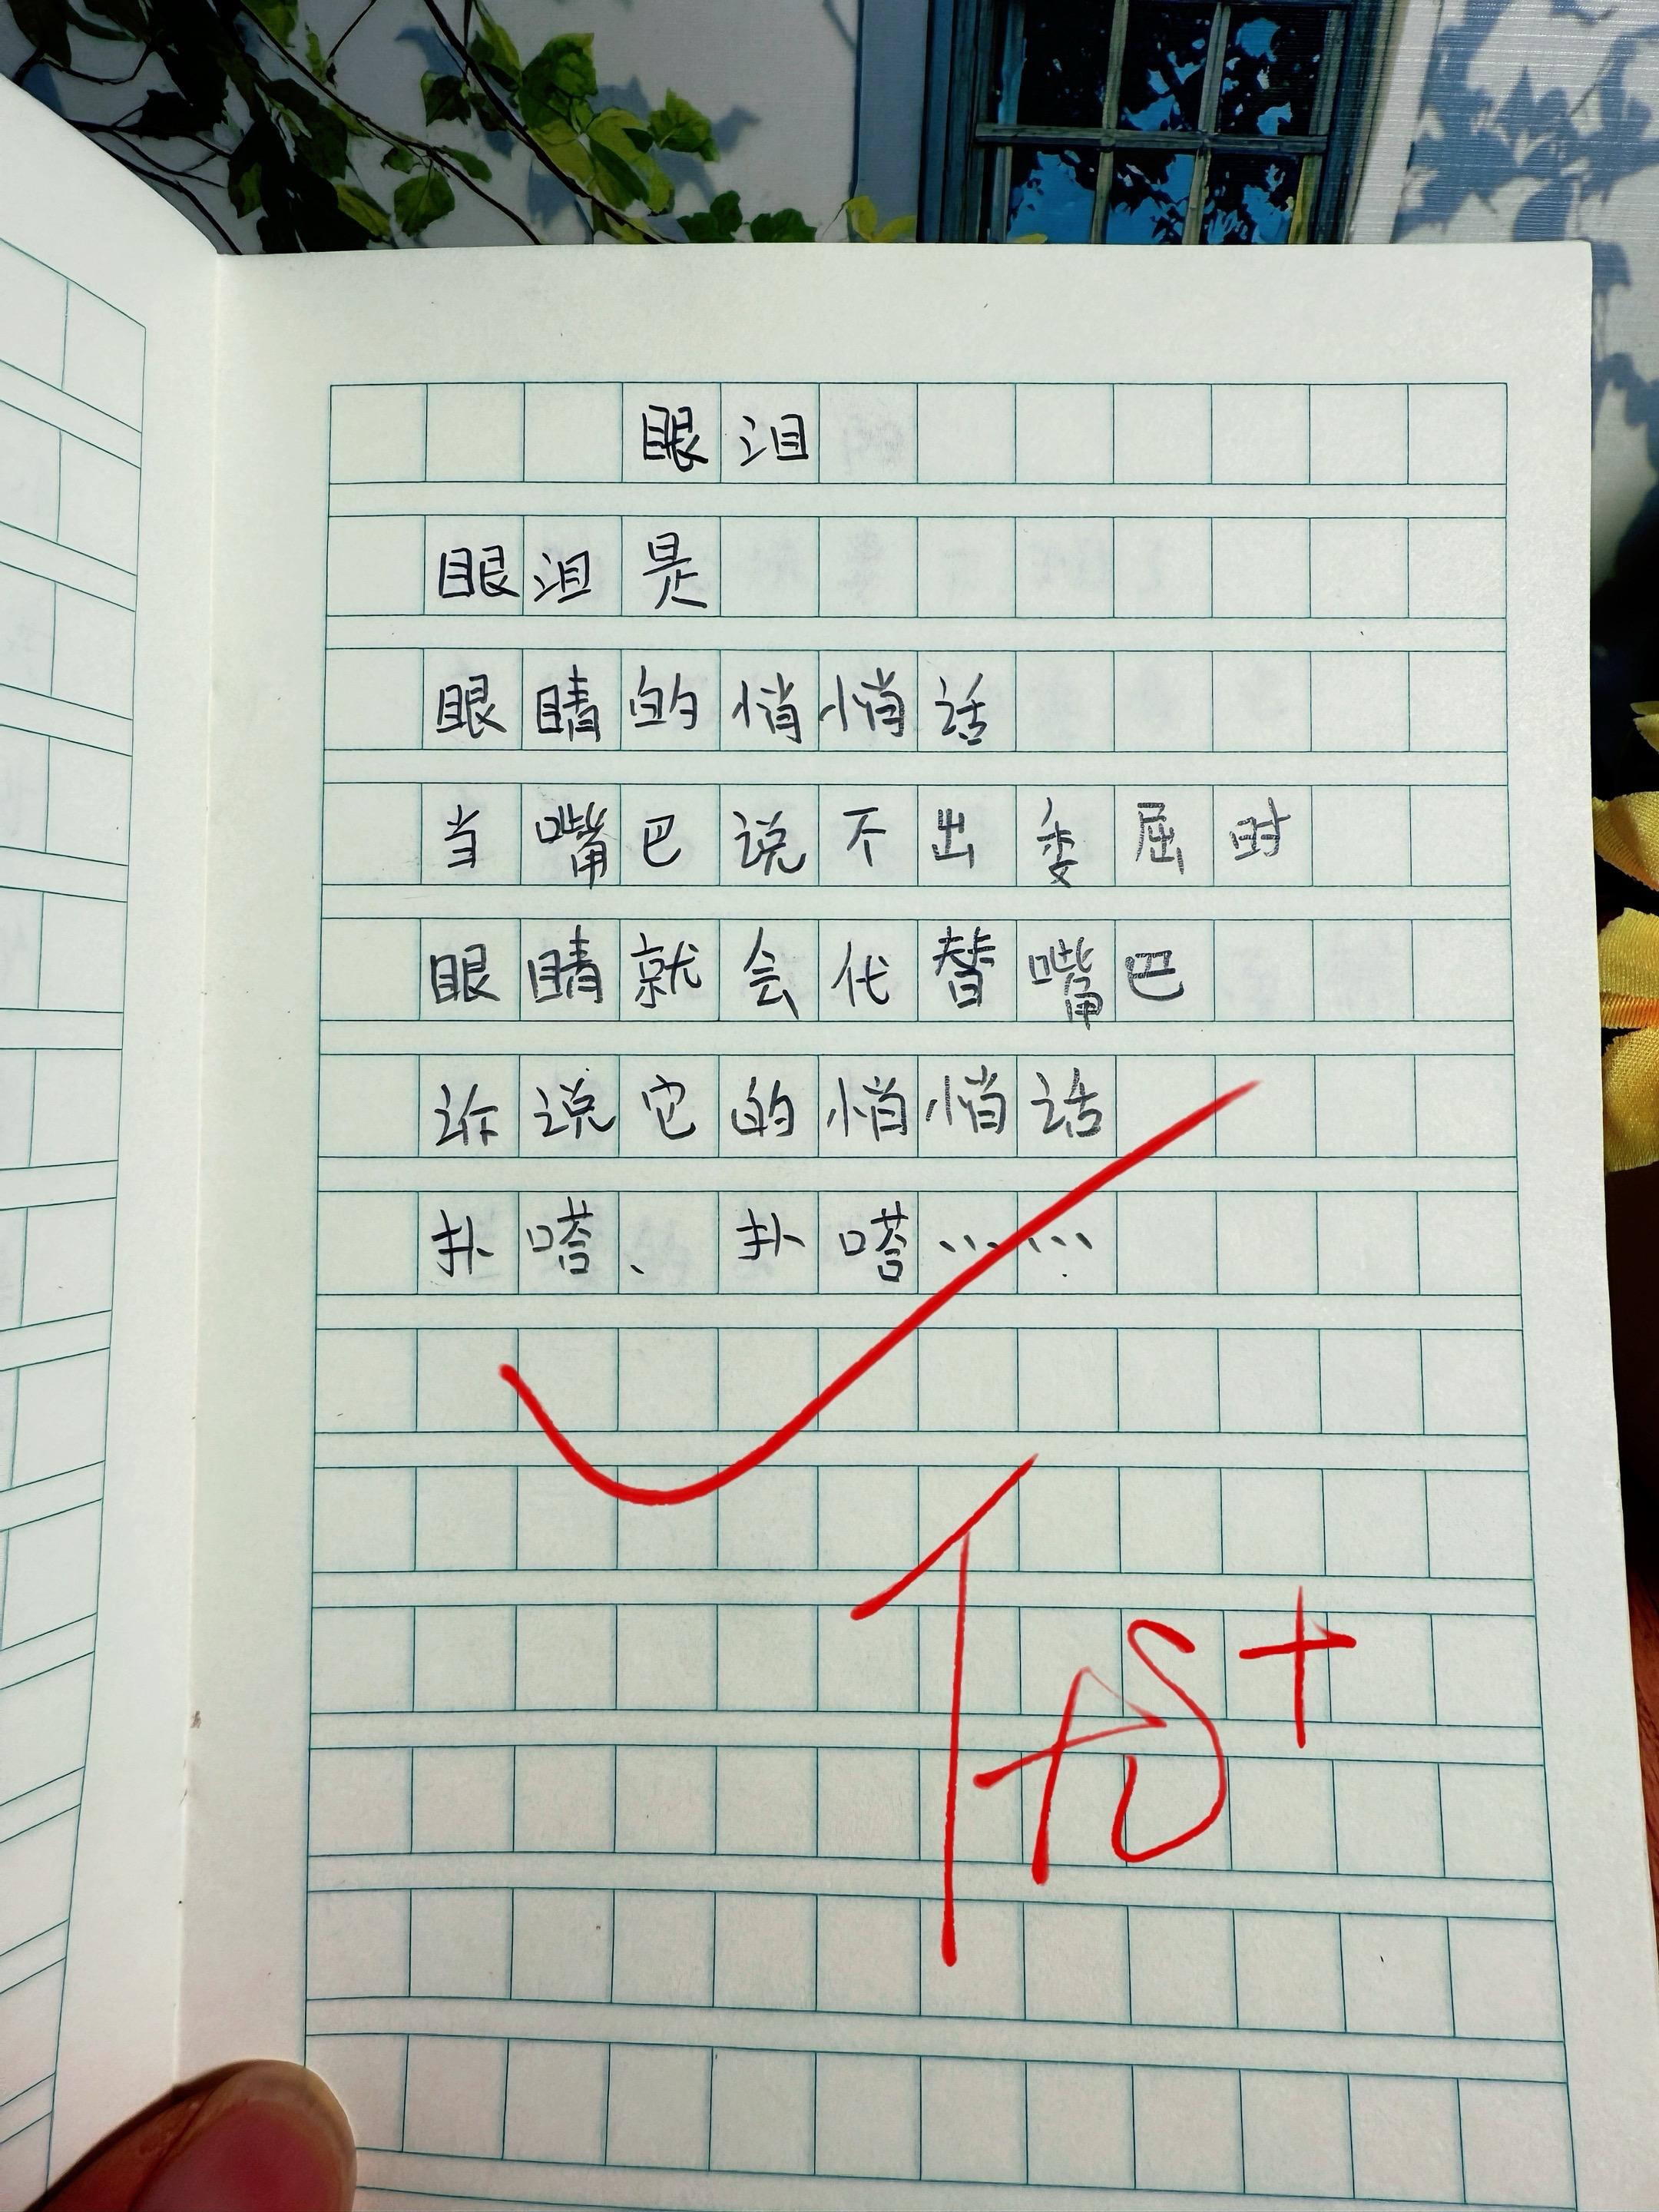 眼泪
眼泪是
眼睛的悄悄话
当嘴巴说不出委屈时
眼睛就会代替嘴巴
诉说它的悄悄话
扑嗒、扑嗒……
优+